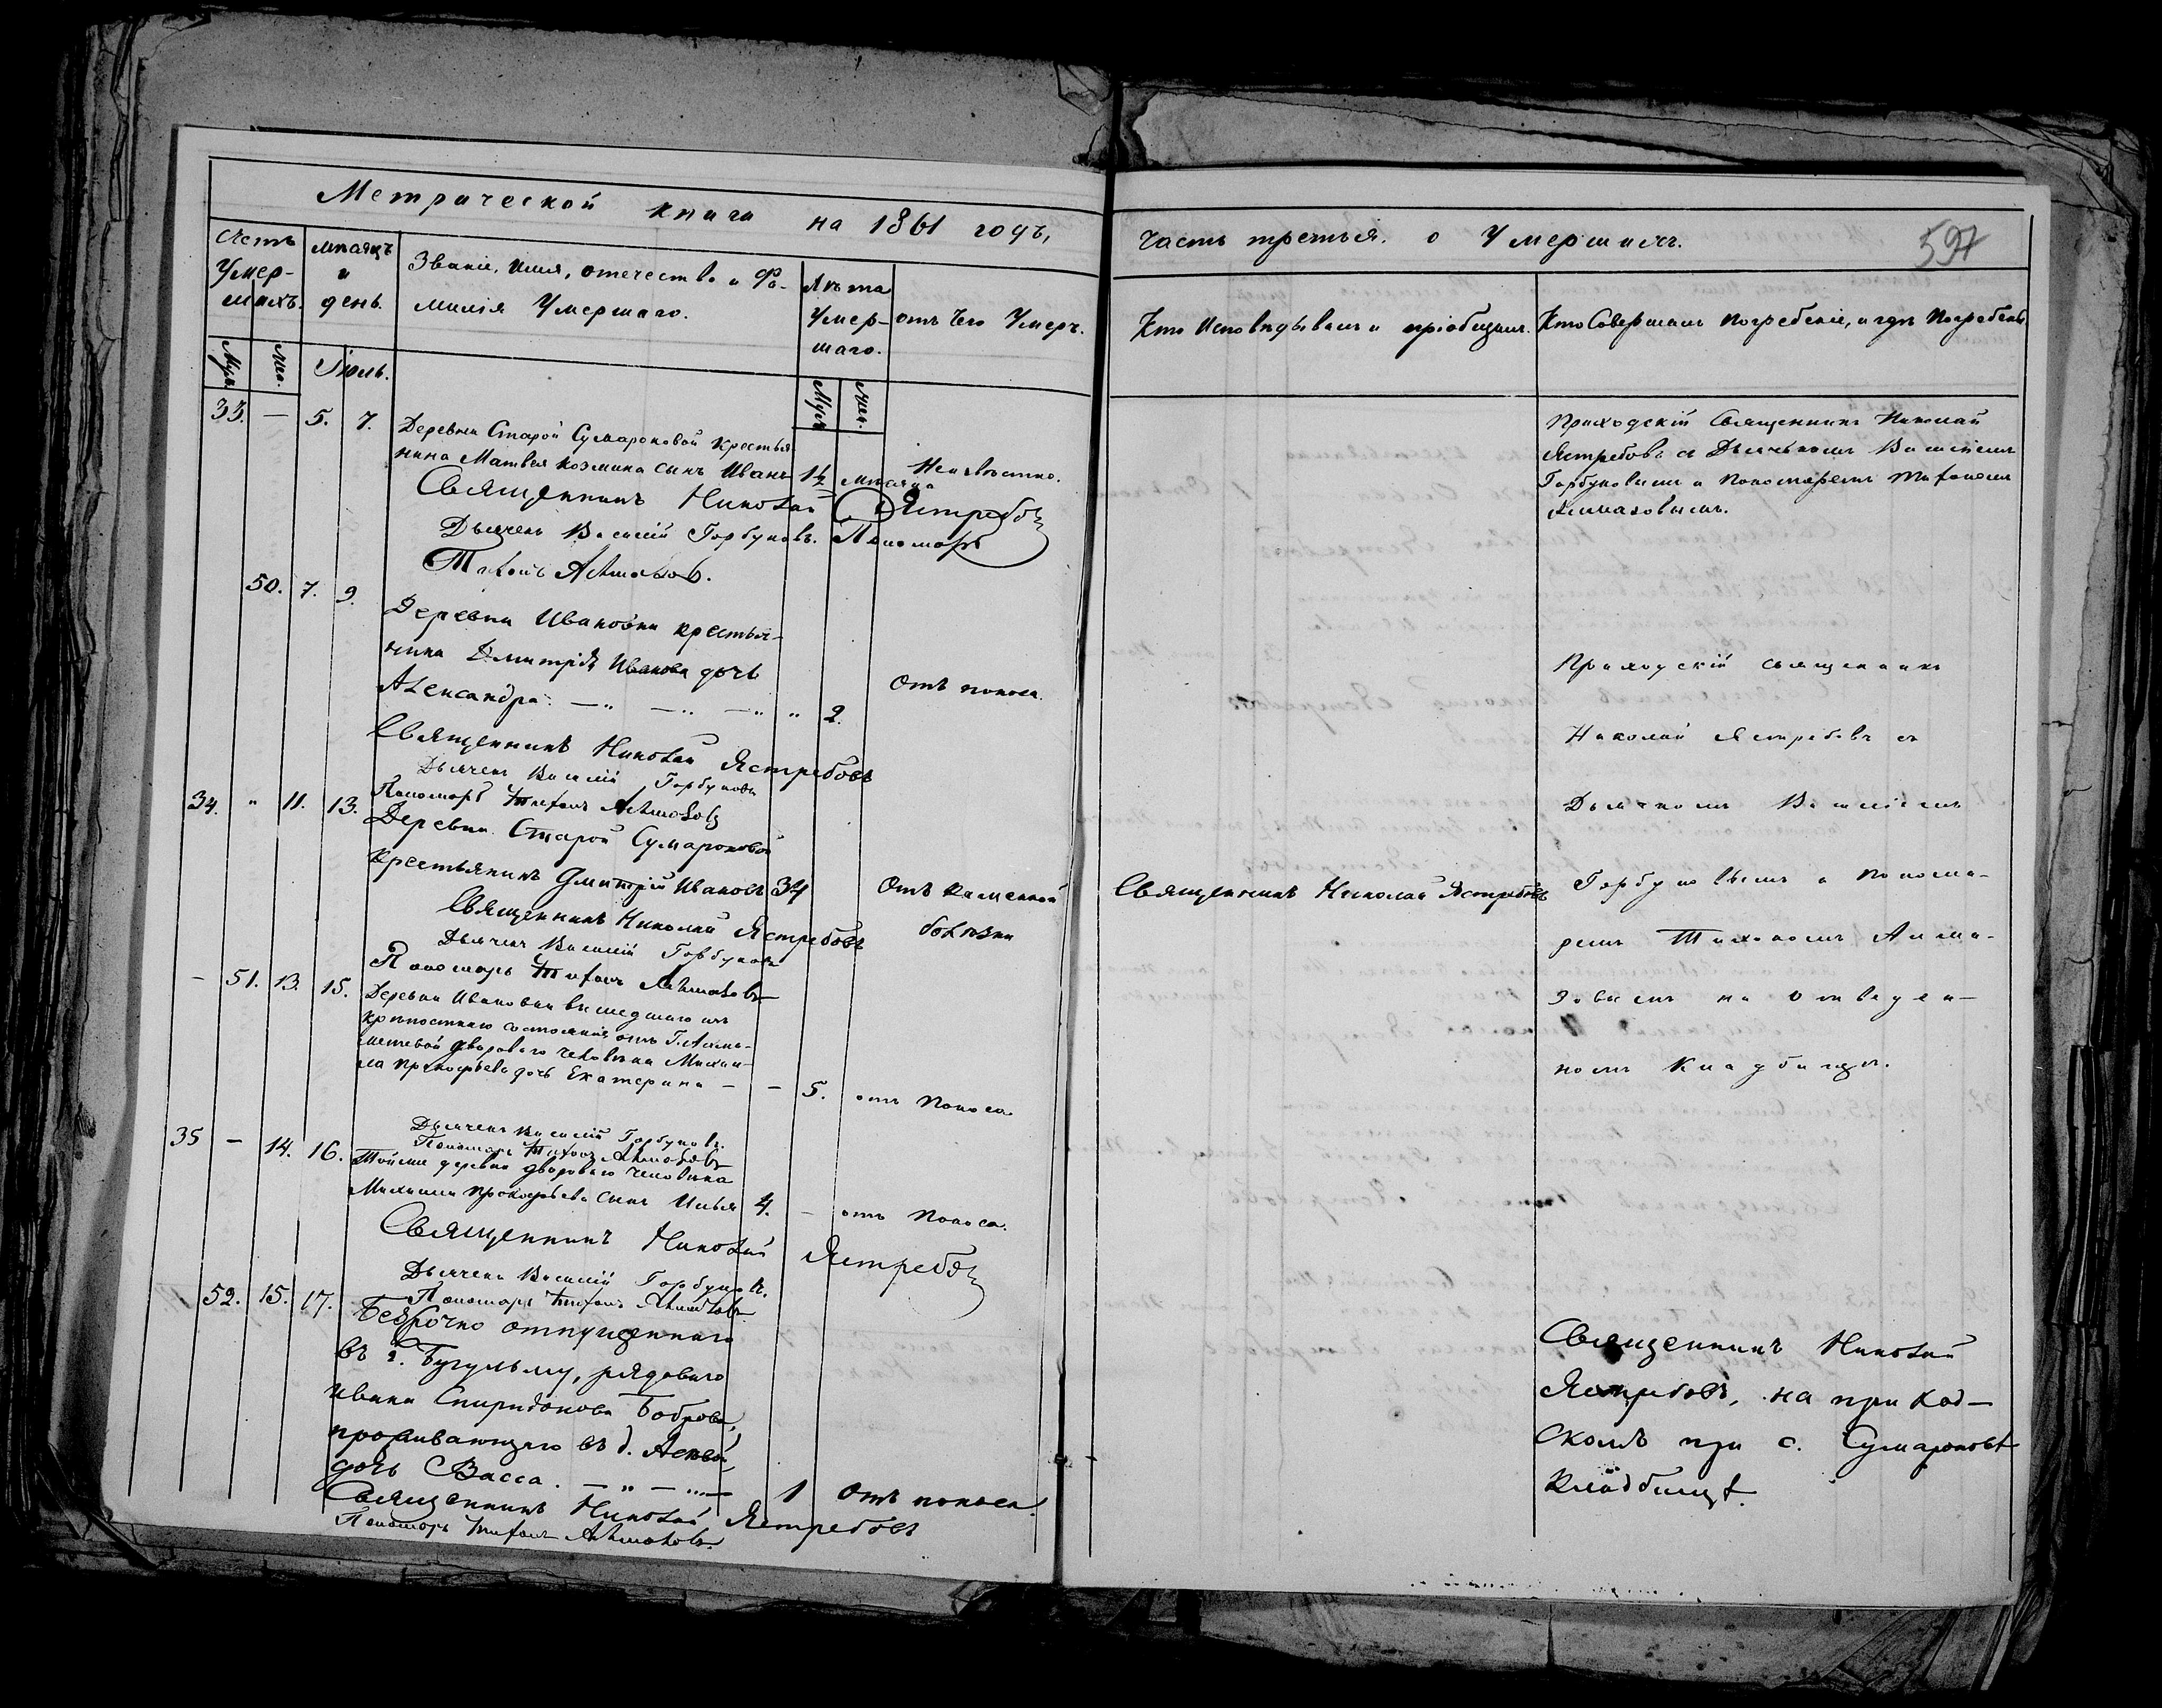 Метрической книги на 1861 годъ,
Счетъ Умер-шихъ.
мѣсяцъ и день.
Званіе, имя, отечество и Фа-
милія Умершаго.
Лѣта Умер-шаго.
отъ чего Умеръ.
Муж. Жен.
Іюль.
Муж. Жен.
33. — 5. 7. Деревни Старой Сумароковой крестья-
нина Матвея Козмина сынъ Иванъ 1½ мѣсяца Неизвѣстно.
Священникъ Николай Ястребовъ
Дьячекъ Василій Горбуновъ. Пономарь
Тихонъ Алмазов.
50. 7. 9. Деревни Ивановки крестья-
нина Дмитрія Иванова дочь
Александра — " — " — " " 2. Отъ поноса.
Священникъ Николай Ястребовъ
Дьячекъ Василій Горбуновъ
Пономарь Тихонъ Алмазовъ
34. " 11. 13. Деревни Старой Сумароковой
крестьянинъ Дмитрій Ивановъ 34 Отъ каменной
болѣзни
Священникъ Николай Ястребовъ
Дьячекъ Василій Горбуновъ
Пономарь Тихонъ Алмазовъ
— 51. 13. 15. Деревни Ивановки вышедшаго изъ
крѣпостнаго состоянія отъ Г.
дворового человѣка Михаи-
ла Прокофьева дочь Екатерина — — 5. отъ поноса
Дьячекъ Василій Горбуновъ.
Пономарь Тихонъ Алмазовъ
35 — 14. 16. Тойже деревни дворового человѣка
Михаила Прокофьева сынъ Илья 4. — отъ поноса.
Священникъ Николай Ястребовъ
Дьячекъ Василій Горбуновъ.
Пономарь Тихонъ Алмазовъ
52. 15. 17. Безсрочно отпущеннаго
въ г. Бугульму, рядоваго
Ивана Спиридонова Боброва,
проживающаго въ д.
дочь Васса. — " — " — 1 Отъ поноса.
Священникъ Николай Ястребовъ
Пономарь Тихонъ Алмазовъ.
Часть третья. о Умершихъ.
597
Кто Исповѣдывалъ и пріобщалъ.
Кто Совершалъ погребеніе, и гдѣ погребены
Приходскій Священникъ Николай
Ястребовъ съ Дьячькомъ Василіемъ
Горбуновымъ и Пономаремъ Тихономъ
Алмазовымъ.
Приходскій священникъ
Николай Ястребовъ съ
Дьячкомъ Василіемъ
Священникъ Николай Ястребовъ
Горбуновымъ и Понома-
ремъ Тихономъ Алма-
зовымъ на отведен-
номъ Кладбищѣ.
Священникъ Николай
Ястребовъ, на приход-
скомъ при с. Сумароковѣ
кладбищѣ.